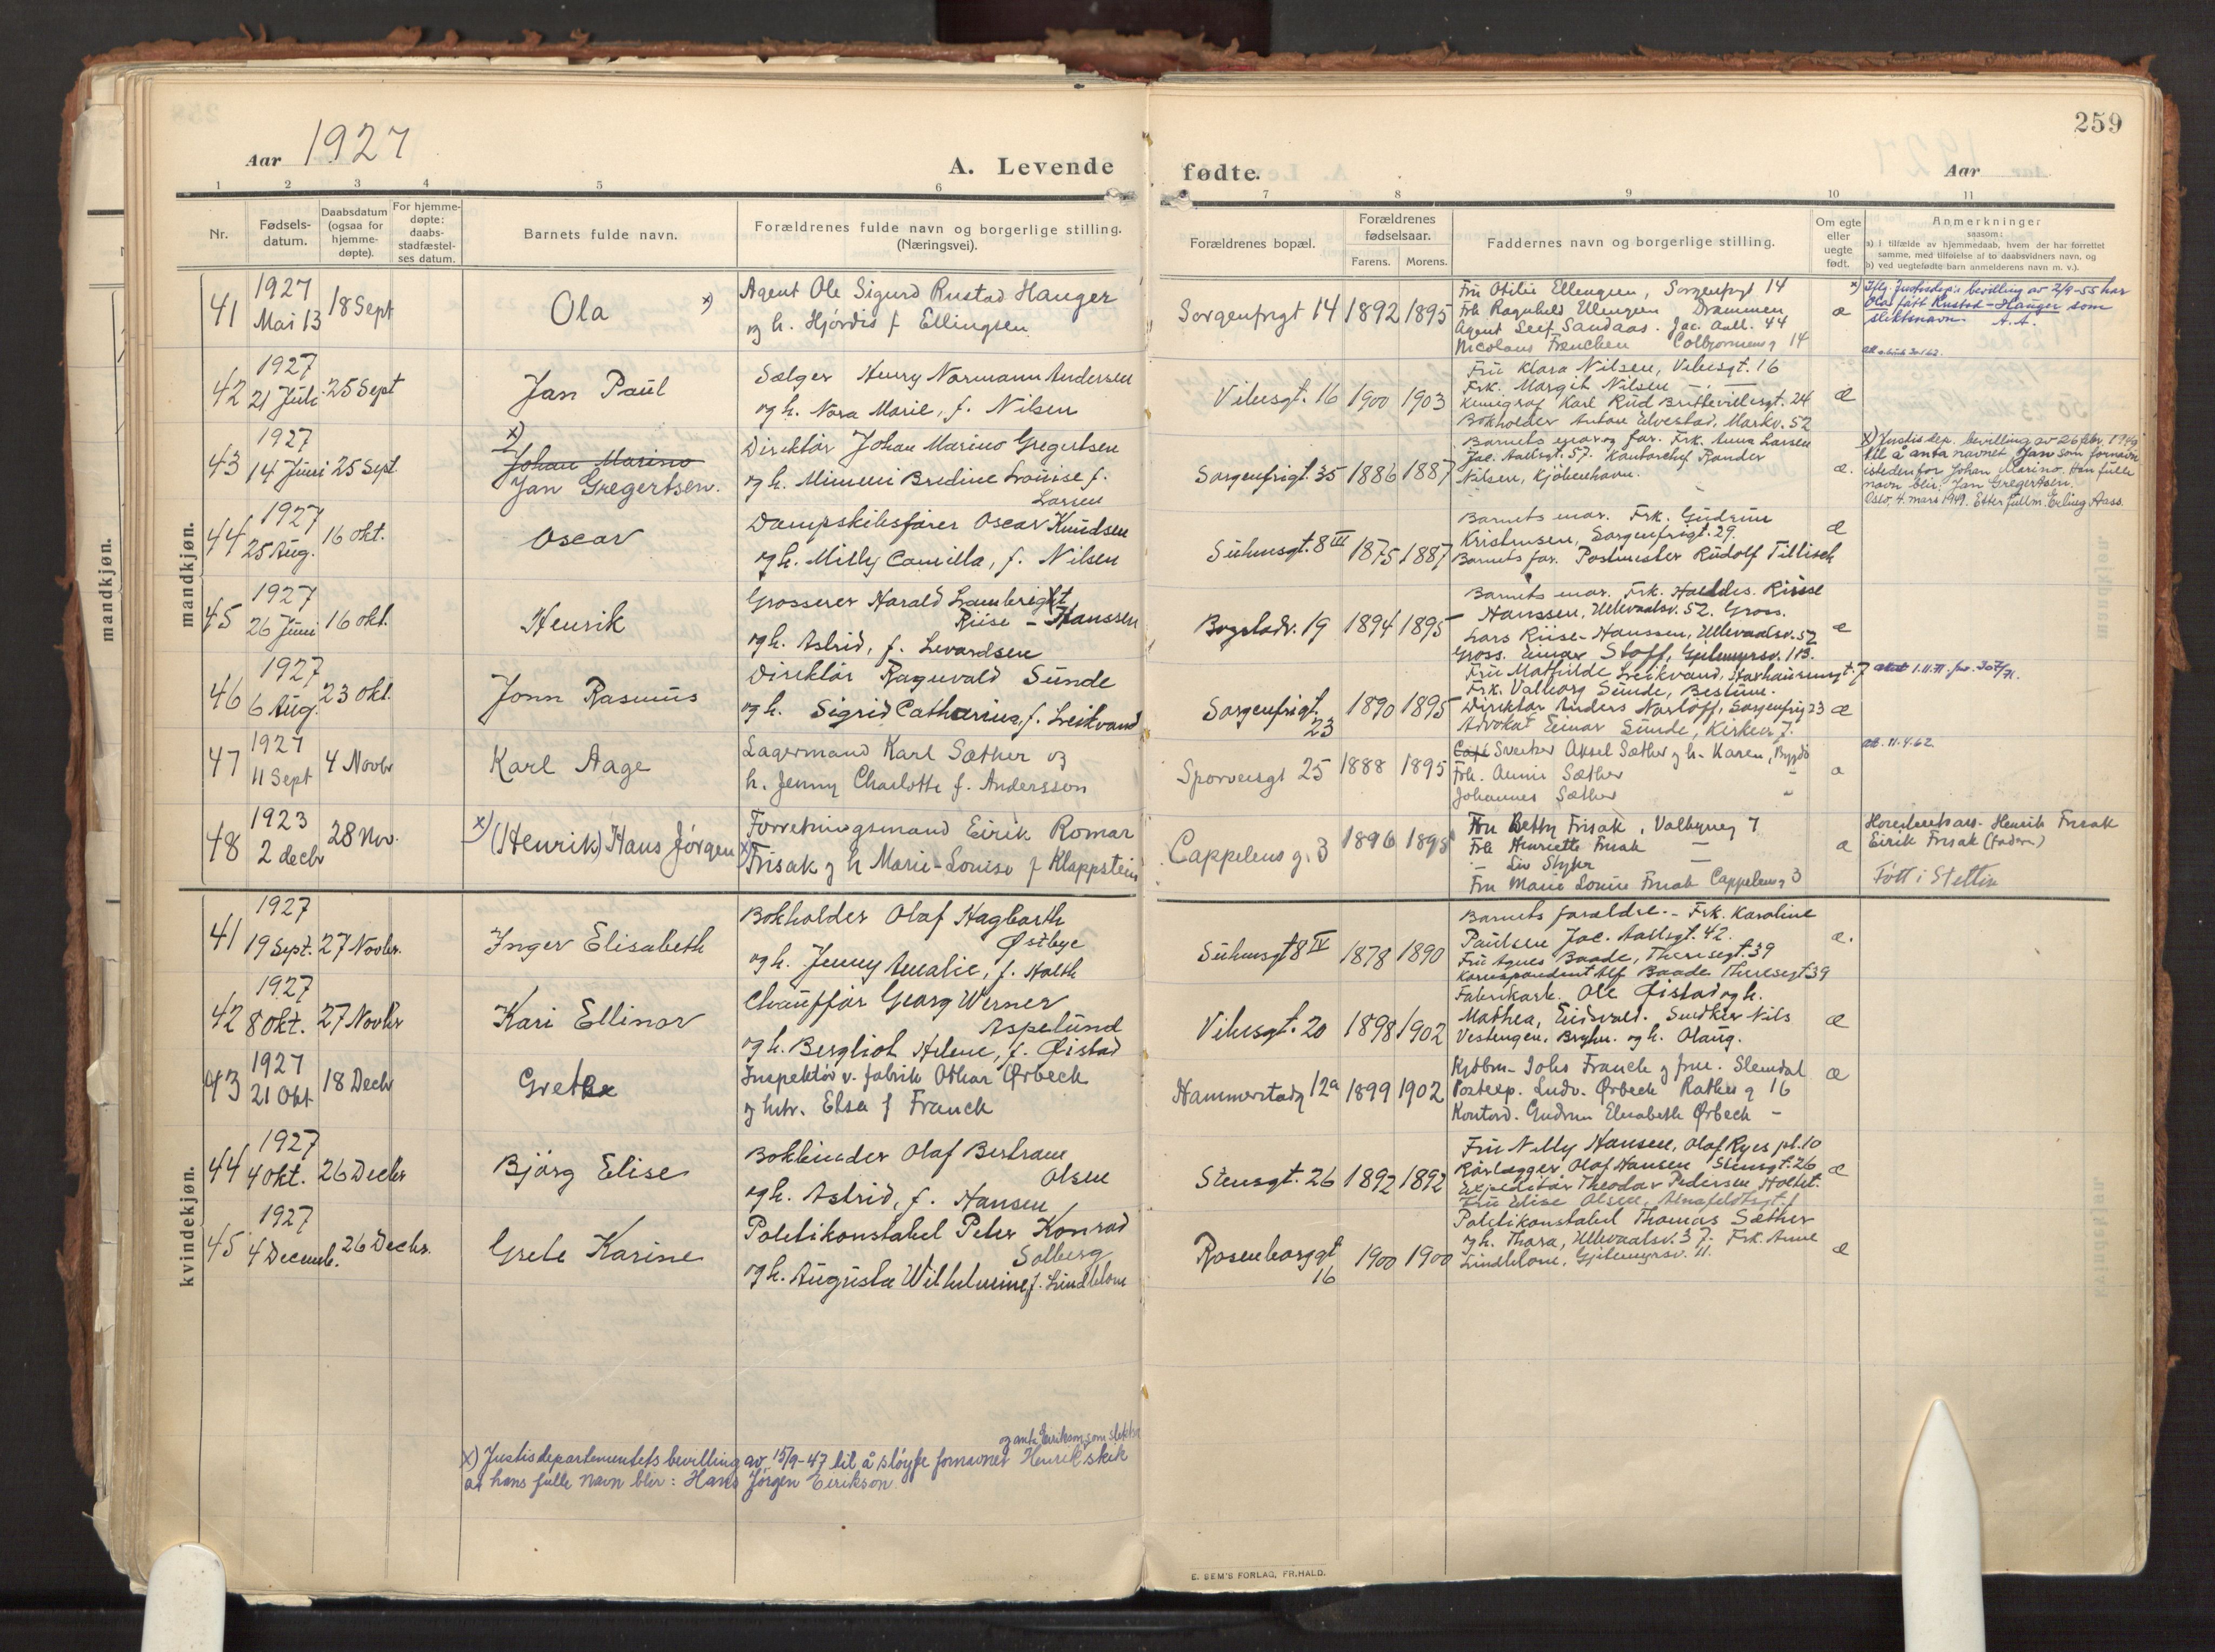 259
Aar 1927
A. Levende
fødte.
Aar
1 2 3 4 5 6 7 8 9 10 11
Nr.
Fødsels-
datum.
Daabsdatum
(ogsaa for
hjemme-
døpte).
For hjemme-
døpte:
daabs-
stadfæstel-
ses datum.
Barnets fulde navn.
Forældrenes fulde navn og borgerlige stilling.
(Næringsvei).
Forældrenes bopæl.
Forældrenes
fødselsaar.
Farens. Morens.
Faddernes navn og borgerlige stilling.
Om egte
eller
uegte
født.
Anmerkninger
saasom:
a) i tilfælde av hjemmedaab, hvem der har forrettet
samme, med tilføielse af to daabsvidners navn, og
b) ved uegtefødte barn anmelderens navn m. v.).
mandkjøn.
mandkjøn.
41 1927
Mai 13 18 Sept
Ola x)
Agent Ole Sigurd Rustad Hauger
og h. Hjördis f Ellingsen
Sorgenfrigt 14 1892 1895
Fru Otilie Ellengsen, Sorgenfrgt 14
Frk Ragnhild Ellengsen Drammen
Agent Leif Sandaas. Jac. Aall. 44
Nicolaus Frenchen Colbjørnsens g 14
æ
x) Iflg. Justisdep's bevilling av 2/9-55 har
Ola fått Rustad-Hauger som
slektsnavn. A.A.
42 1927
21 Juli 25 Sept
Jan Paul
Sælger Henry Normann Andersen
og h. Nora Marie, f. Nilsen
Vibesgt. 16 1900 1903
Fru Klara Nilsen, Vibesgt. 16
Frk. Margit Nilsen — " —
Karl Rud 24
Bokholder Anton Elvestad, Markv. 52
æ
43 1927
14 Juni 25 Sept.
x)
Johan Marino
Jan Gregertsen.
Direktør Johan Marino Gregertsen
og h. Mimmi Bredine Louise f.
Larsen
Sorgenfrigt. 35 1886 1887
Barnets mor og far. Frk. Anna Larsen
Jac. Aallsgt. 57. Kontorchef Rander
Nilsen, Kjöbenhavn.
æ.
x) Justisdep. bevilling av 26 febr. 1949
til å anta navnet Jan som fornavn
istedenfor Johan Marino. Hans fulle
navn blir: Jan Gregertsen.
Oslo, 4. mars 1949. Etter fullm. Erling Aass.
44 1927
25 Aug. 16 okt.
Oscar
Dampskibsfører Oscar Knudsen
og h. Milly Camilla, f. Nilsen
Suhmsgt. 8 III 1875 1887
Barnets mor. Frk. Gudrun
Kristensen, Sorgenfrigt. 29.
Barnets far. Postmester Rudolf Tillisch
æ
45 1927
26 Juni 16 okt.
Henrik
Grosserer Harald Lambrigt
Riise - Hanssen
og h. Astrid, f. Levardsen
Bogstadv. 19 1894 1895
Barnets mor. Frk. Riise
Hanssen, Ullevaalsv. 52. Gross.
Lars Riise-Hanssen, Ullevaalsv. 52
Gross. Einar Stoff, Gjetemyrsv. 113.
æ
46 1927
6 Aug. 23 okt.
Jonn Rasmus
Direktør Ragnvald Sunde
og h. Sigrid Catharina, f. Leikvand
Sorgenfrigt.
23 1890 1895
Fru Mathilde Leikvand, 7
Frk. Valborg Sunde, Bestum.
Direktør Anders Norløff, Sorgenfrig 23
Advokat Einar Sunde, Kirkev 7.
æ
47 1927
11 Sept 4 Novbr
Karl Aage
Lagermand Karl Sæther og
h. Jenny Charlotte f. Andersson
Sporveisgt 25 1888 1895
Snekker Aksel Sæther og h. Karen, Bygdö
Frk. Annie Sæther "
Johannes Sæther "
æ
att. 11.4.62.
48 1923
2 decbr 28 Nov.
x) (Henrik) Hans Jörgen
Forretningsmand Eirik Romar
x) Frisak og h Marie-Louise f Klappstein
Cappelens g. 3 1896 1898
Fru Betty Frisak, Valkyrieg 7
Frk Henriette Frisak —
— Liv —
Fru Marie Louise Frisak Cappelens g 3
æ
Henrik Frisak
Eirik Frisak (Faderen)
Født i Stettin
kvindekjøn.
41 1927
19 Sept. 27 Novbr.
Inger Elisabeth
Bokholder Olaf Hagbarth
Østbye
og h. Jenny Amalie, f. Holth
Suhmsgt 8 IV 1878 1890
Barnets forældre. - Frk. Karoline
Paulsen Jac. Aallsgt. 42.
Fru Agnes Baade, Theresegt. 39
Korrespondent Alf Baade Theresegt 39
æ.
42 1927
8 Okt. 27 Novbr
Kari Ellinor
Chauffør Georg Werner
Aspelund
og h. Bergliot Helene, f. Øistad
Vibesgt. 20 1898 1902
Fabrikarb. Ole Øistad og h.
Mathea, Eidsvold. Snedker Nils
Vestengen, Brynn. og h. Olaug.
æ
43 1927
21 Okt 18 Decbr
Grethe
Inspektør v. fabrik Othar Ørbech
og hstr. Elsa f Franck
Hammerstadg 12a 1899 1902
Kjöbm. Johs Franck og frue. Slemdal
Postexp. Ludv. Ørbech Rathkes g 16
Kontord. Gudrun Elisabeth Ørbech —
æ
44 1927
4 Okt. 26 Decbr
Bjørg Elise
Bokbinder Olaf Bertram
Olsen
og h. Astrid, f. Hansen
Stensgt. 26 1892 1892
Fru Nelly Hansen, Olaf Ryes pl. 10
Rörlegger Olaf Hansen Stensgt. 26
Expeditør Theodor Pedersen Holtet.
Fru Elise Olsen,
æ
45 1927
4 Decemb. 26 Decbr.
Grete Karine
Politikonstabel Peter Konrad
Solberg
og h. Augusta Wilhelmine, f. Lindblom
Rosenborggt
16 1900 1900
Politikonstabel Thomas Sæther
og h. Thora, Ullevaalsv. 37. Frk. Anne
Lindblom, Gjetemyrsv. 11.
æ
og anta Eirikson som slektsn
x) Justisdepartementets bevilling av 15/9-47 til å sløyfe fornavnet Henrik slik
at hans fulle navn blir: Hans Jörgen Eirikson.
E. SEM'S FORLAG, FR.HALD.